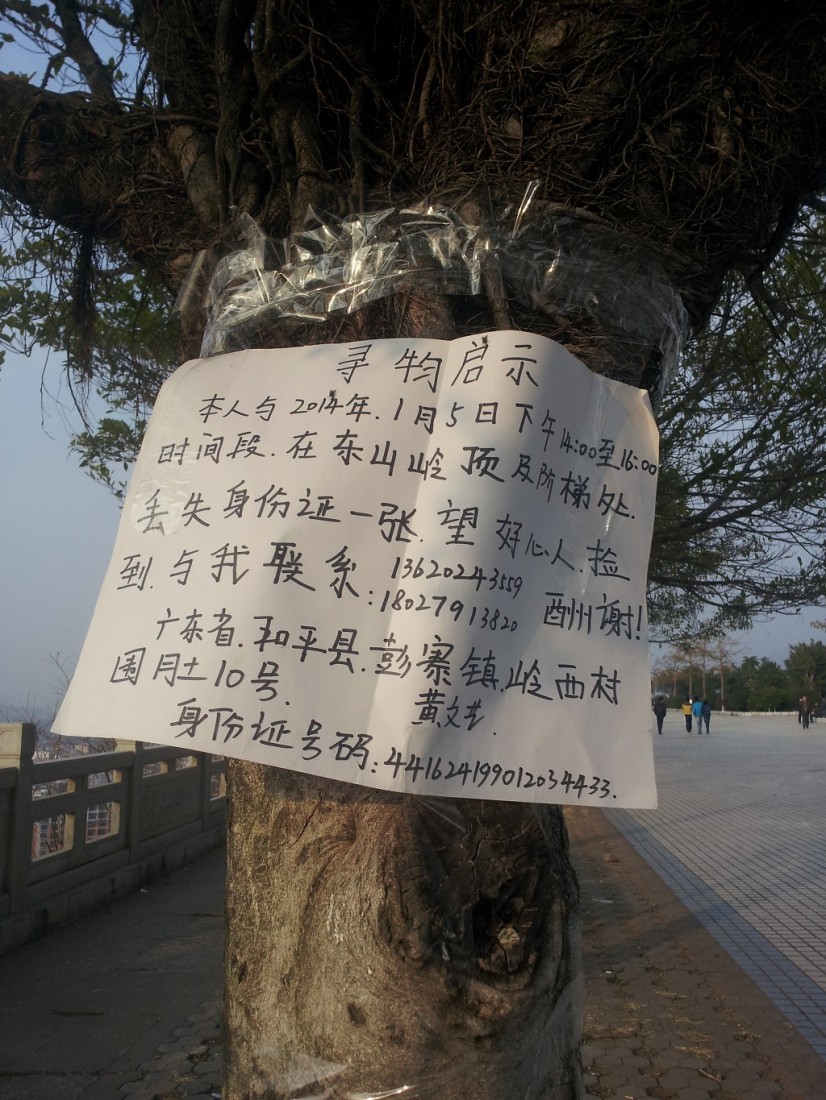 寻物启示
本人与2014年.1月5日下午14:00至16:00
时间段.在东山岭顶及阶梯处.
丢失身份证一张.望好心人.捡
到.与我联系:13620243559 酬谢!
18027913820
广东省.和平县.彭寨镇.岭西村
围月土10号.
黄文.
身份证号码:441624199012034433.